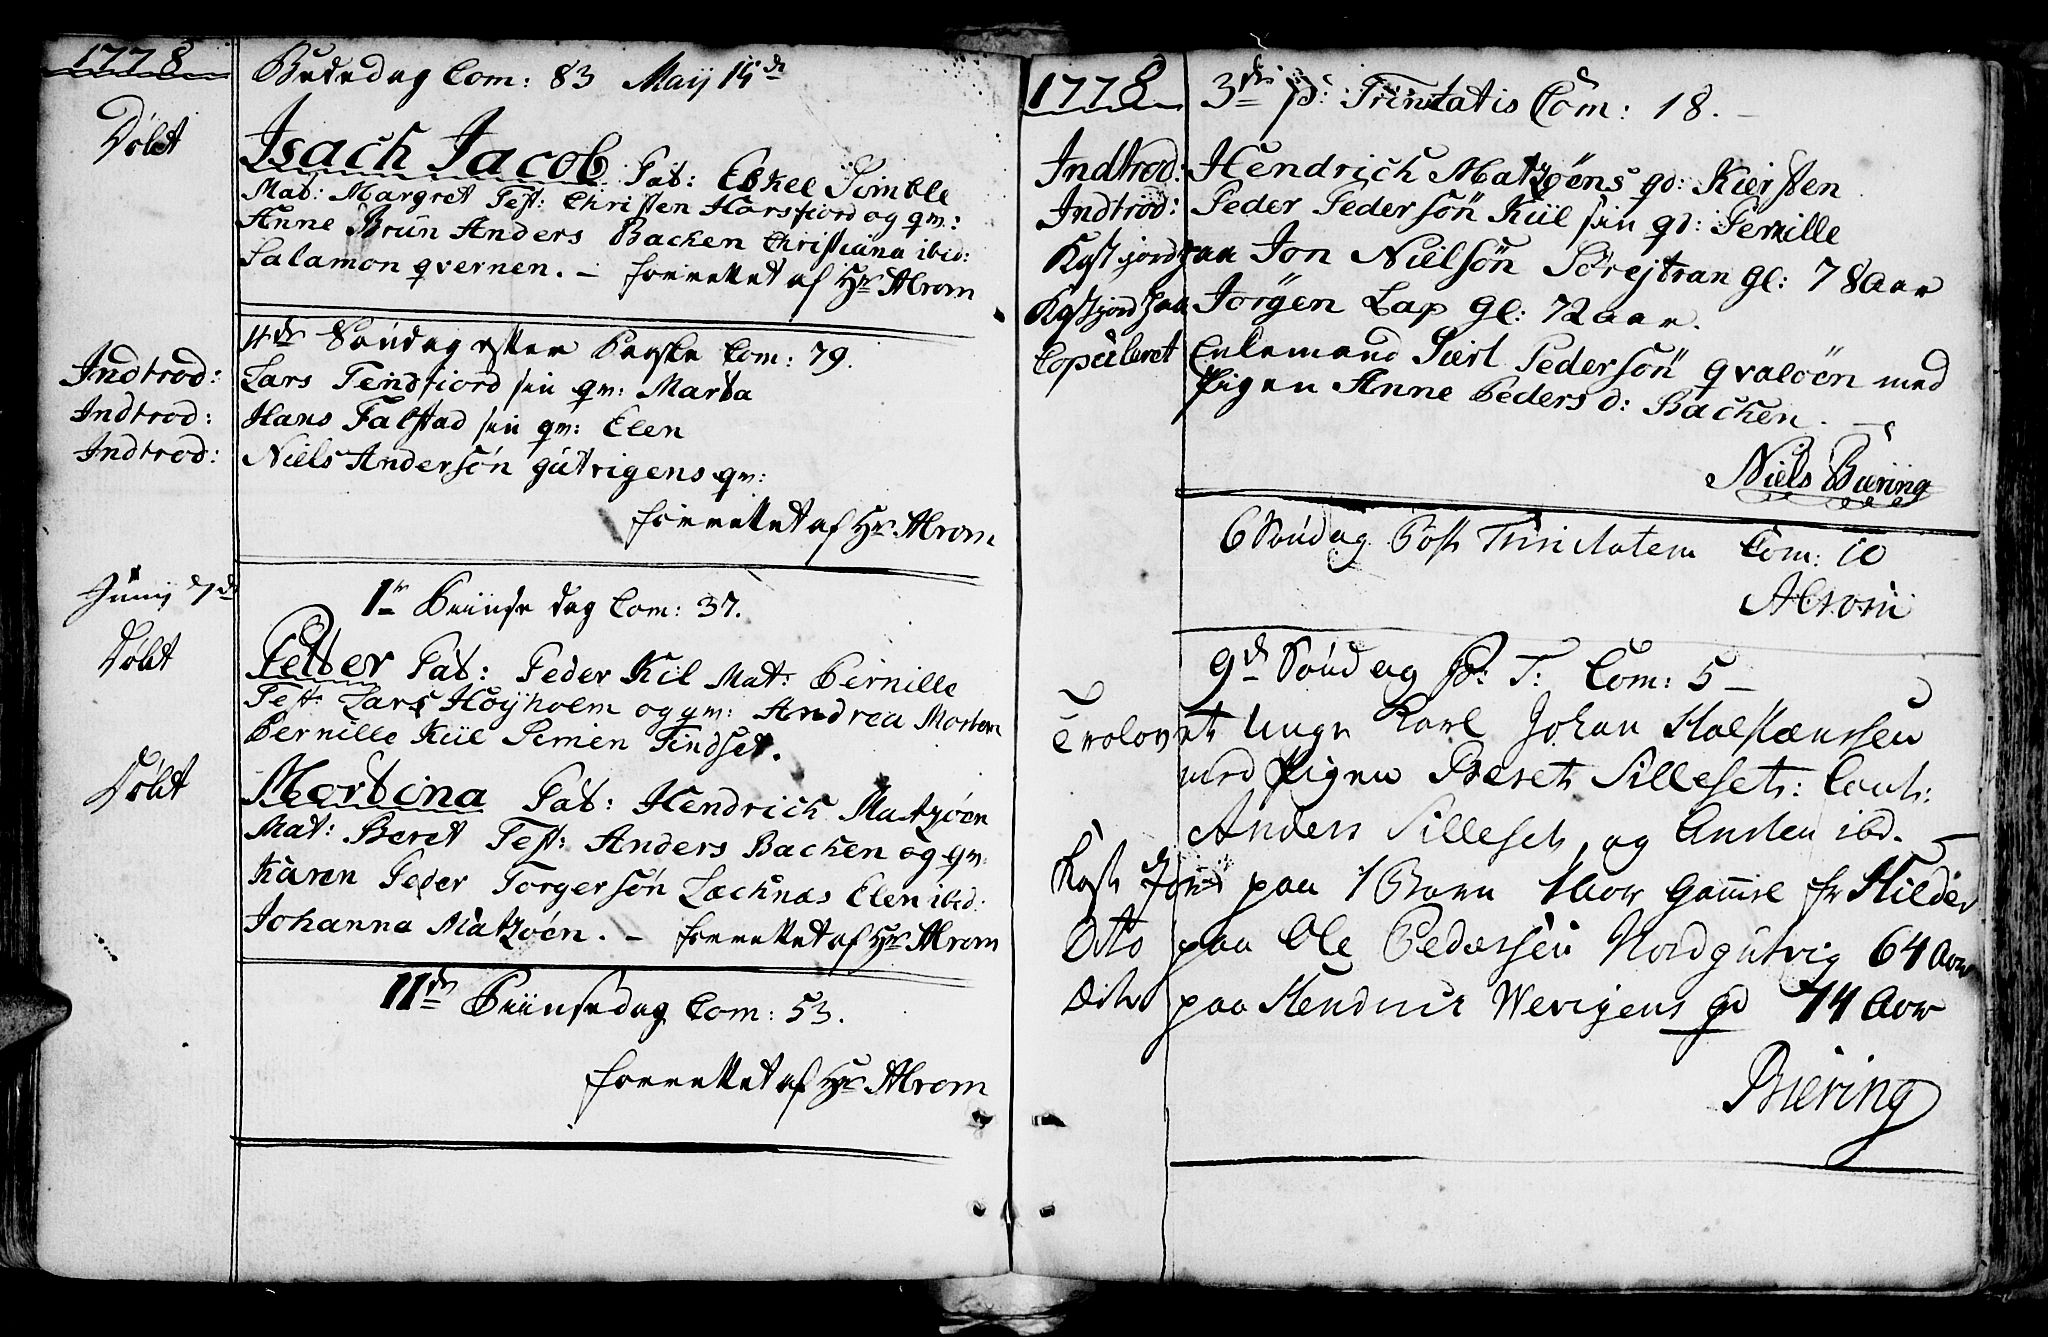 1778
Bededag Com: 83 May 15de
Døbt
Isach Jacob. Pat: Eskel Simble
Mat: Margret Test: Christen Horsfiord og qv:
Anne Brun Anders Backen Christiana ibid:
Salamon qvernen. – forrettet af Hr Alrom
4de Søndag efter Paaske Com: 79.
Indtrod: Lars Tendfiord sin qv: Marta
Indtrod: Hans Falstad sin qv: Elen
Indtrod: Niels Andersøn gutvigens qv:
forrettet af Hr Alrom
Junij 7de
1te Puinse dag Com: 37.
Døbt
Petter Pat: Peder Kil Mat: Pernille
Test: Lars Høyholm og qv: Andrea Morten
Pernille Kiil Simen Tindset.
Døbt
Mortina Pat: Hendrich Matzøen
Mat: Beret Test: Anders Backen og qv:
Karen Peder Torgersøn Lecknæs Elen ibid:
Johanna Matzøen. – forrettet af Hr Alrom
IIden Puinsedag Com: 53.
forrettet af Hr Alrom
1778
3die p: Trinitatis Com: 18. –
Indtrod: Hendrich Matzøens qv: Kiersten
Indtrod: Peder Pedersøn Kiil sin qv: Pernille
Kast jord paa Jon Nielsøn Sørejtran gl: 78 aar
Kast jord paa Jørgen Lap gl: 72 aar.
Copuleret Enkemand Siurt Pedersøn qvaløen med
Pigen Anne Pedersd: Backen. –
Niels Buering
6 Søndag Post Trinitatem Com: 10
Alrom
9de Søndag P: T: Com: 5 –
Trolovet Unge Karl Johan Halstænssen
med Pigen Beret Silleset: Caut:
Anders Silleset, og Ansten ibd. –
Kast Jord paa 1 Barn 1 Aar Gamel fr Hilder
Dito paa Ole Pederssen Nordgutvig 64 Aar
Dito paa Hendrick Wevigens qv 74 Aar
Buering